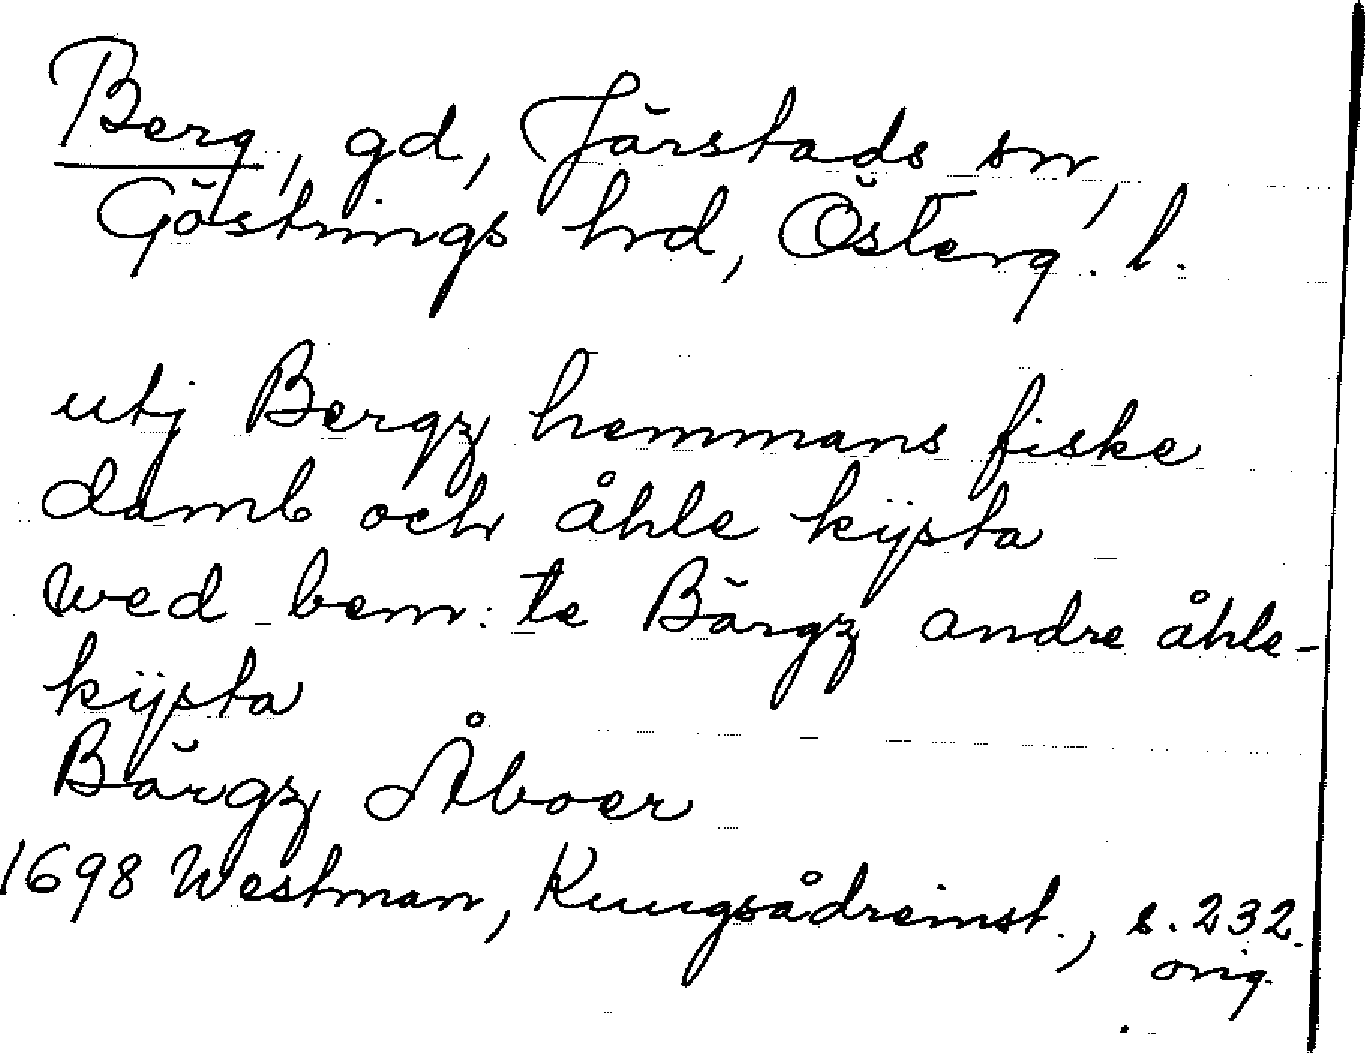 Berg, gd, Järstads sn,
Göstrings hrd, Österg. l.
utj Bergz hemmans fiske
damb och åhle kijsta
wed bem:te Bärgz andre åhle-
kijsta
Bärgz Åboer
1698 Westman, Kungsådreinst., s. 232.
orig.